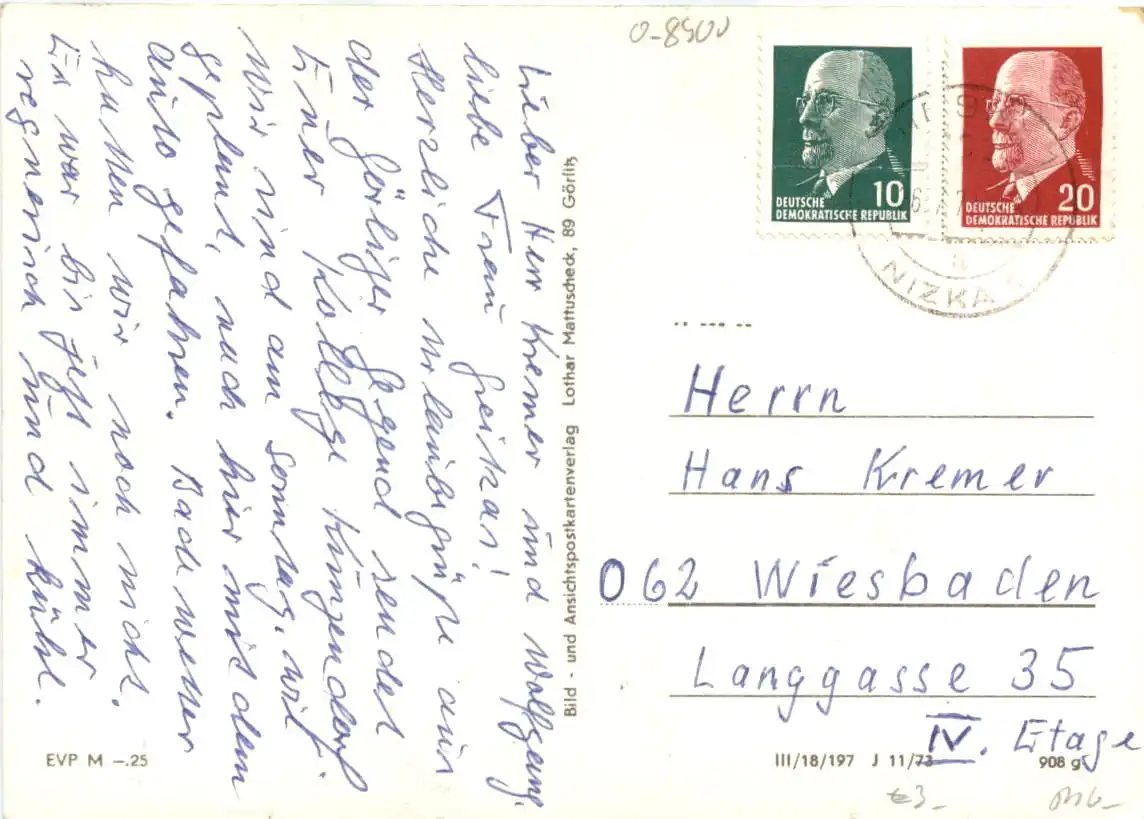 Lieber Herr Kremer und Wolfgang,
liebe Frau
Herzliche Urlaubsgrüße aus
der Görlitzer Gegend sendet
Einer Kollege
Wir sind am Sonntag, wie
geplant, nach hier mit dem
Auto gefahren. Badewetter
hatten wir noch nicht.
Es war bis jetzt immer
regnerisch und kühl.
EVP M –.25
Bild - und Ansichtspostkartenverlag Lothar Mattuscheck, 89 Görlitz
0-8900
10
DEUTSCHE
DEMOKRATISCHE REPUBLIK
20
DEUTSCHE
DEMOKRATISCHE REPUBLIK
NIZKA
Herrn
Hans Kremer
062 Wiesbaden
Langgasse 35
IV. Etage
III/18/197 J 11/73
908 g
€3.-